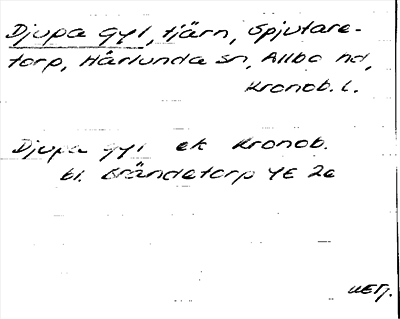 Djupa Gyl, tjärn, Spjutare-
torp, Härlunda sn, Allbo hd,
Kronob. l.
Djupa gyl ek Kronob.
bl. Brändetorp 4E 2e